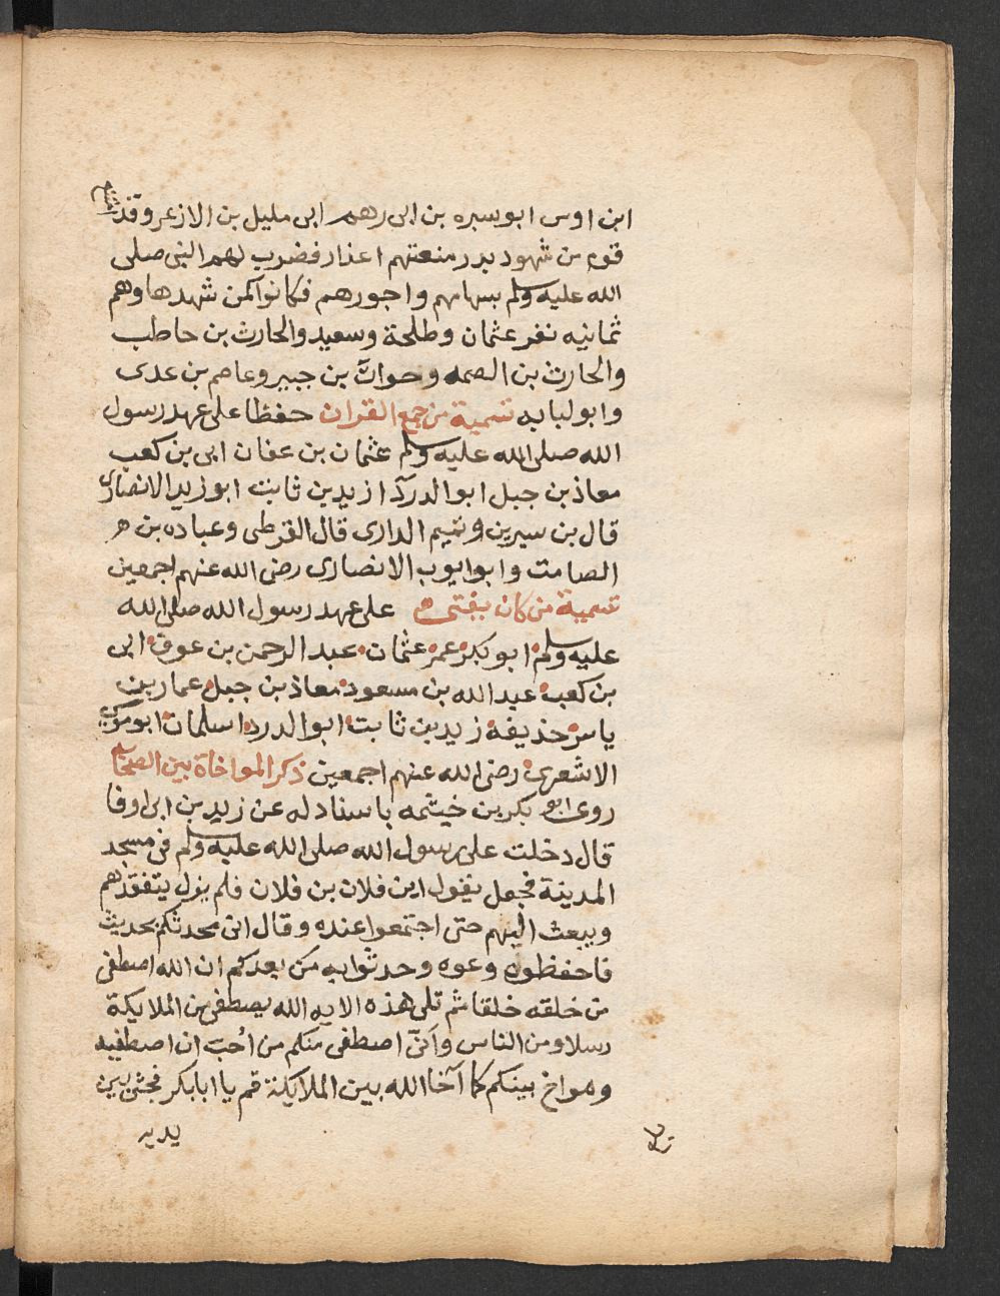 ابن اوس ابو سبره بن ابى رهم ابى مليل بن الازعر وقد
قوم من شهود بدر منعتهم اعذار فضرب لهم النبى صلى
الله عليه وسلم بسهامهم واجورهم فكانوا كمن شهدها وهم
ثمانيه نفر عثمان وطلحة وسعيد والحارث بن حاطب
والحارث بن الصمه وخوات بن جبير وعاصم بن عدى
وابو لبابه تسمية من جمع القران حفظا على عهد رسول
الله صلى الله عليه وسلم عثمان بن عفان ابى بن كعب
معاذ بن جبل ابو الدردآ ازيد بن ثابت ابو زيد الانصارى
قال بن سيرين وتميم الدارى قال القرظى وعباده بن
الصامت وابو ايوب الانصارى رضى الله عنهم اجمعين
تسمية من كان يفتى على عهد رسول الله صلى الله
عليه وسلم ابو بكر عمر عثمان عبد الرحمن بن عوف ابى
بن كعب عبد الله بن مسعود معاذ بن جبل عمار بن
ياسر حذيفه زيد بن ثابت ابو الدردا سلمان ابو موسى
الاشعرى رضى الله عنهم اجمعين ذكر المواخاة بين الصحابة
روى ابو بكر بن خيثمه باسناد له عن زيد بن ابى اوفا
قال دخلت على رسول الله صلى الله عليه وسلم فى مسجد
المدينة فجعل يقول اين فلان بن فلان فلم يزل يتفقدهم
ويبعث اليهم حتى اجتمعوا عنده وقال انى محدثكم بحديث
فاحفظوه وعوه وحدثوا به من بعدكم ان الله اصطفى
من خلقه خلقا ثم تلى هذه الايه الله يصطفى من الملايكة
رسلا ومن الناس وانى اصطفى منكم من احب ان اصطفيه
ومواخ بينكم كما آخا الله بين الملايكة قم يا ابا بكر فجثى بين
يديه